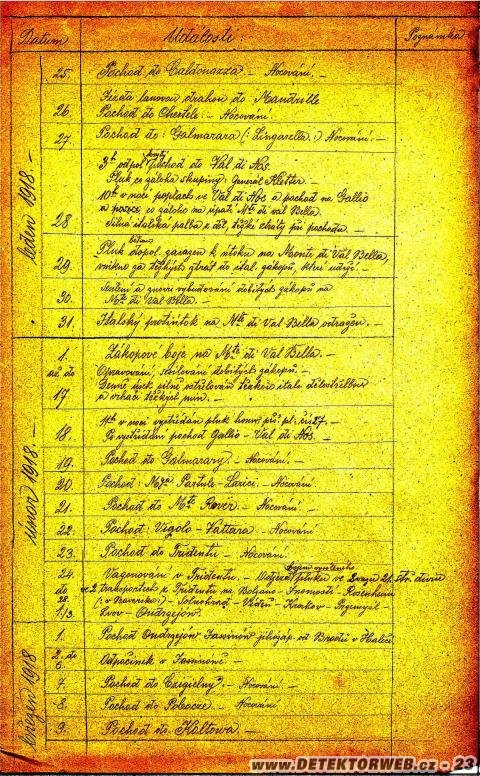 Datum Události: Poznámka
leden 1918 –
25. Pochod do Caldonazza – Nocování. –
Jízda lanovou drahou do Mandrille
26. Pochod do Chestele. – Nocování.
27. Pochod do: Galmarara (: Zingarella :) Nocování. –
3h odpol. pochod do Val di Nos.
Pluk co záloha skupiny: General Kletter. –
10h v noci poplach ve Val di Nos a pochod na Gallio
a co záloha na úpatí Mte di val Bella.
28 Silná italská palba z děl, těžké ztráty při pochodu. –
Pluk dopol. zasazen k útoku na Monte di Val Bella,
29. vnikne za těžkých ztrát do ital. zákopů, které udrží. –
Sesílení a znovu vybudování dobitých zákopů na
30. Mte di Val Bella. –
31. Italský protiútok na Mte di Val Bella odražen. –
únor 1918. –
1. Zákopové boje na Mte di Val Bella. –
až do Opravování, sesilování dobitých zákopů. –
Denně úsek silně ostřelován těžkou itals. dělostřelbou
17 a vrhači těžkých min. –
11h v noci vystřídán pluk honv. pěš. pl. čís.
18. Po vystřídání pochod Gallio – Val di Nos. –
19. Pochod do Galmarary. – Nocování.
20. Pochod: Mga Partule – Larici. – Nocování.
21. Pochod do Mte Rovér. – Nocování. –
22. Pochod: Vigolo – Vattara. – Nocování
23. Pochod do Tridentu. – Nocování.
24. Vagonování v Tridentu. – Odjezd pluku ve svazu stř. divise
do v 2 transportech z Tridentu na Bolzano – Insmosti – Rosenheim
28. (: v Bavorsku :) – Solnohrad – Vídeň – Krakov – Přemysl –
1./3. Lvov – Ondrzejów.
březen 1918
1. Pochod Ondrzejów Jassinów jihozáp. od Brodů v Haliči
2. do
6. Odpočinek v Jassinově. –
7. Pochod do Czigielny. – Nocování. –
8. Pochod do Pobocze. – Nocování
9. Pochod do Koltowa. –
www.DETEKTORWEB.cz - 23